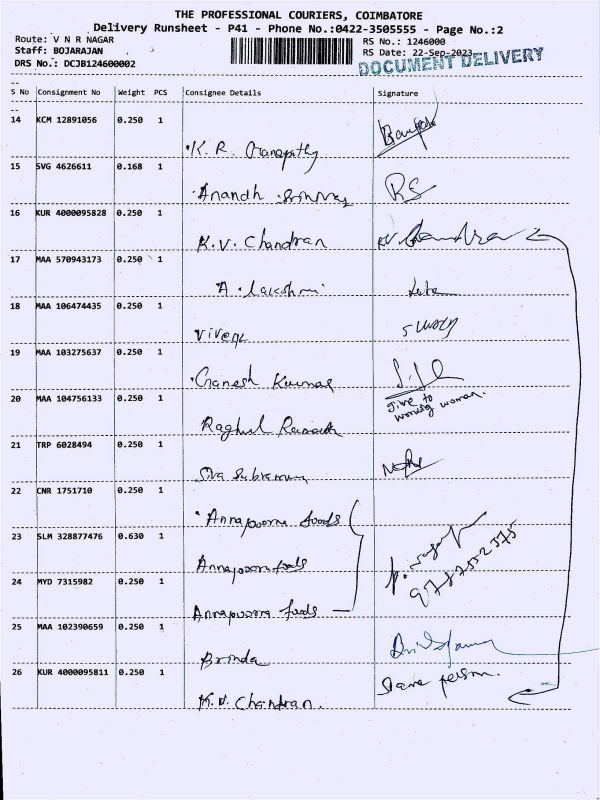 THE PROFESSIONAL COURIERS, COIMBATORE
Delivery Runsheet - P41 - Phone No.:0422-3505555 - Page No.:2
Route: V N R NAGAR
RS No.: 1246000
Staff: BOJARAJAN
RS Date: 22-Sep-2023
DRS No.: DCJB124600002
DOCUMENT DELIVERY
S No Consignment No Weight PCS Consignee Details Signature
14 KCM 12891056 0.250 1
K. R. Ganapathy
15 SVG 4626611 0.168 1
Anandh RS
16 KUR 4000095828 0.250 1
K.V. Chandran
17 MAA 570943173 0.250 1
A. Lakshmi
18 MAA 106474435 0.250 1
Vivek
19 MAA 103275637 0.250 1
Ganesh Kumar
20 MAA 104756133 0.250 1
give to
working woman.
Raghul
21 TRP 6028494 0.250 1
Siva Subramani
22 CNR 1751710 0.250 1
Annapoorna foods
23 SLM 328877476 0.630 1
Annapoorna foods
24 MYD 7315982 0.250 1
Annapoorna foods
25 MAA 102390659 0.250 1
Brinda
26 KUR 4000095811 0.250 1
Same person.
K.V. Chandran.